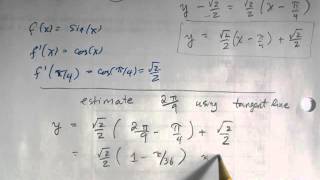 y - √2/2 = √2/2 (x - π/4)
f(x) = sin(x)
f'(x) = cos(x)
f'(π/4) = cos(π/4) = √2/2
y = √2/2 (x - π/4) + √2/2
estimate 2π/9 using tangent line
y = √2/2 (2π/9 - π/4) + √2/2
= √2/2 (1 - π/36)